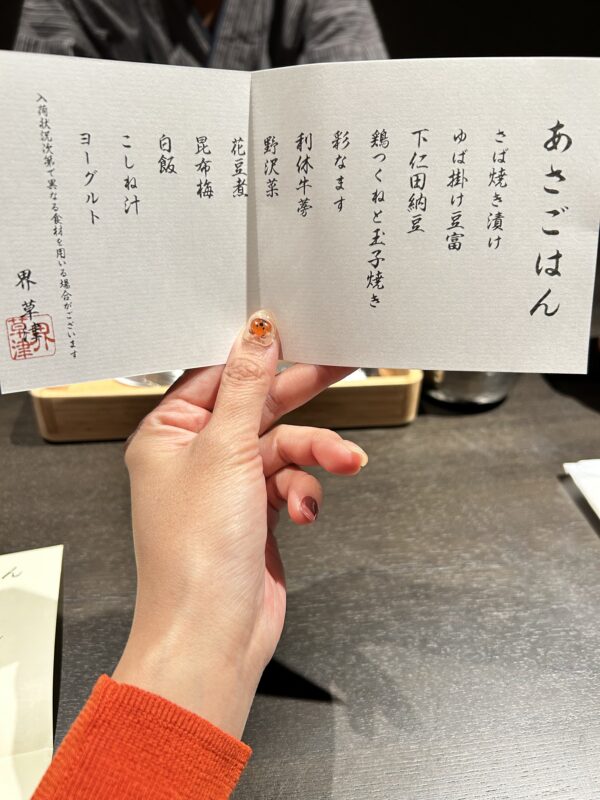 あさごはん
さば焼き漬け
ゆば掛け豆富
下仁田納豆
鶏つくねと玉子焼き
彩なます
利休牛蒡
野沢菜
花豆煮
昆布梅
白飯
こしね汁
ヨーグルト
入荷状況次第で異なる食材を用いる場合がございます
界 草津
界草津
ん